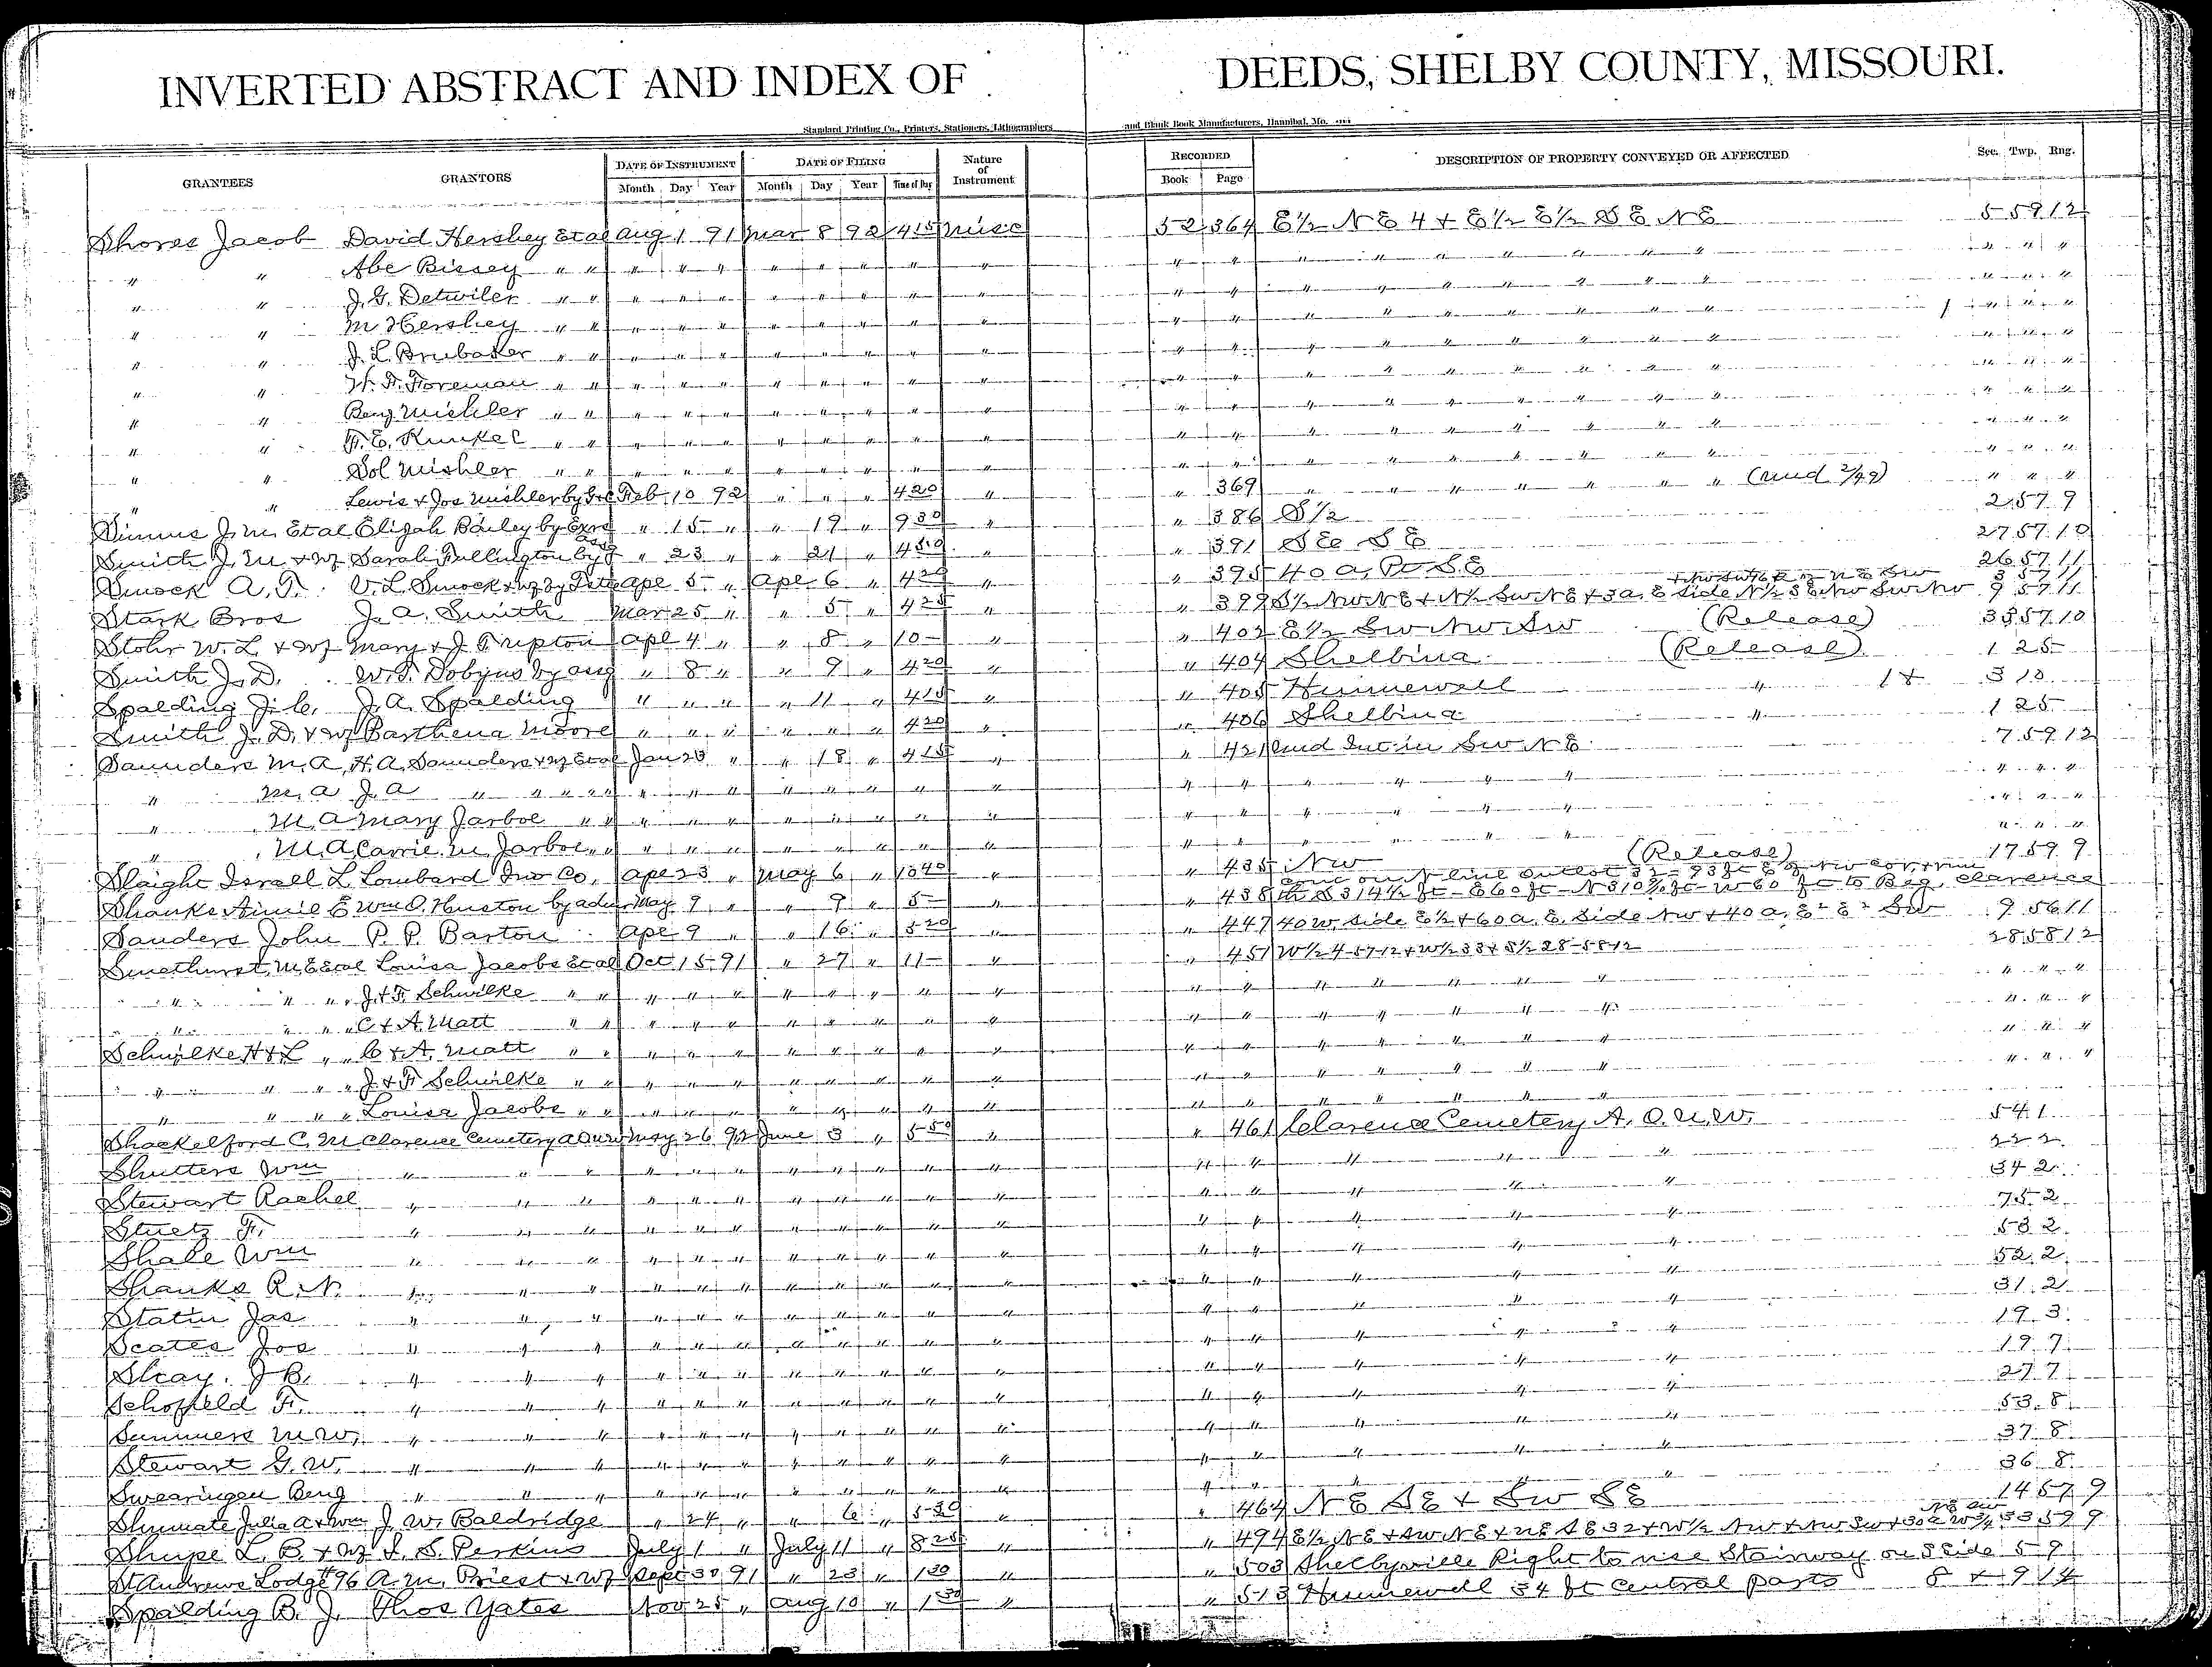 INVERTED ABSTRACT AND INDEX OF DEEDS, SHELBY COUNTY, MISSOURI.
Standard Printing Co., Printers, Stationers, Lithographers and Blank Book Manufacturers, Hannibal, Mo.
GRANTEES GRANTORS DATE OF INSTRUMENT DATE OF FILING Nature of Instrument RECORDED DESCRIPTION OF PROPERTY CONVEYED OR AFFECTED Sec. Twp. Rng.
Month Day Year Month Day Year Time of Day Book Page
Shores Jacob David Hershey Et al Aug 1 91 Mar 8 92 415 Misc 52 364 E½ NE 4 + E½ E½ SE NE 5 59 12
" " Abe Bissey " " " " " " " " " " " " " " " " " " " "
" " J. G. Detwiler " " " " " " " " " " " " " " " " " " " "
" " M Hershey " " " " " " " " " " " " " " " " " " " "
" " J. L. Brubaker " " " " " " " " " " " " " " " " " " " "
" " H. A. Foreman " " " " " " " " " " " " " " " " " " " "
" " Benj Mishler " " " " " " " " " " " " " " " " " " " "
" " F. E. Kunkel " " " " " " " " " " " " " " " " " " " "
" " Sol Mishler " " " " " " " " " " " " " " " " " " " "
" " Lewis & Jos Mishler by Feb 10 92 " " " 420 " " 369 " " " " " " " (und 2/49) " " "
Simms J. M. Et al Elijah Bailey by Exrs " 15 " " 19 " 930 " " 386 S½ 2 57 9
Smith J. M & wf Sarah Fullington by " 23 " " 21 " 450 " " 391 SE SE 27 57 10
Smock A. T. V. L. Smock & wf by Apl 5 " Apl 6 " 420 " " 395 40 a, Pt SE 26 57 11
Stark Bros J. A. Smith Mar 25 " " 5 " 425 " " 399 S½ NW NE + N½ SW NE + 3a, E Side N½ SE NW SW NW 9 57 11
Stohr W. L. & wf Mary & J Tripton Apl 4 " " 8 " 10 - " " 402 E½ SW NW SW (Release) 33 57 10
Smith J. D. W. T. Dobyns by asg " 8 " " 9 " 420 " " 404 Shelbina (Release) 1 25
Spalding J. C. J. A. Spalding " " " " 11 " 415 " " 405 Hunnewell " 1 & 3 10
Smith J. D. & wf Barthena Moore " " " " " " 420 " " 406 Shelbina " 1 25
Saunders M. A. H. A. Saunders & wf Et al Jan 23 " " 18 " 415 " " 421 und Int in SW NE 7 59 12
" M. A J. A " " " " " " " " " " " " " " " " " " " "
" M. A Mary Jarboe " " " " " " " " " " " " " " " " " " "
" M. A Carrie M. Jarboe " " " " " " " " " " " " " " " " " " "
Slaight Israll L Lombard Inv Co. Apl 23 " May 6 " 1040 " " 435 NW (Release) 17 59 9
Shanks Aimie E Wm O. Huston by adm May 9 " " 9 " 5 - " " 438 th S 314½ ft - E 60 ft - N 310 ft - W 60 ft to Beg. Clarence
Sanders John P. P. Barton Apl 9 " " 16 " 520 " " 447 40 W. Side E½ + 60 a. E. Side NW + 40 a. E² E² SW 9 56 11
Smethurst M E Et al Louisa Jacobs Et al Oct 15 91 " 27 " 11 - " " 451 W½ 4-57-12 + W½ 33 + S½ 28-58-12 28 58 12
" " " J. & F. Schwilke " " " " " " " " " " " " " " " " " " "
" " " C & A. Matt " " " " " " " " " " " " " " " " " " "
Schwilke H & L " " C & A. Matt " " " " " " " " " " " " " " " " " " "
" " " " J & F Schwilke " " " " " " " " " " " " " " " " " " "
" " " " Louisa Jacobs " " " " " " " " " " " " " " "
Shackelford C. M Clarence Cemetery A O U W May 26 92 June 3 " 550 " " 461 Clarence Cemetery A. O. U. W. 54 1
Shutters Wm " " " " " " " " " " " " " " " " 22 2
Stewart Rachel " " " " " " " " " " " " " " " 34 2
Stuetz F. " " " " " " " " " " " " " " " 75 2
Shale Wm " " " " " " " " " " " " " " " 53 2
Shanks R. N. " " " " " " " " " " " " " " " 52 2
Statin Jas " " " " " " " " " " " " " " " 31 2
Scates Jos " " " " " " " " " " " " " " " 19 3
Stray. J B. " " " " " " " " " " " " " " " 19 7
Schofield F. " " " " " " " " " " " " " " " 27 7
Summers M. W. " " " " " " " " " " " " " " " 53 8
Stewart G. W. " " " " " " " " " " " " " " " 37 8
Swearingen Benj " " " " " " " " " " " " " " " 36 8
Shumate Julia A & Wm J. W. Baldridge " 24 " " 6 " 530 " " 464 NE SE + SW SE 14 57 9
Shupe L. B. & wf I. S. Perkins July 1 " July 11 " 825 " " 494 E½ NE + SW NE + NE SE 32 + W½ NW + NW SW + 30 a W ¾ NE SW 33 59 9
St Andrews Lodge #96 A. M. Priest & wf Sept 30 91 " 23 " 130 " " 503 Shelbyville Right to use Stairway on S Side 5 9
Spalding B. J. Thos Yates Nov 25 " Aug 10 " 130 " " 513 Hunnewell 34 ft Central parts 8 & 9 14